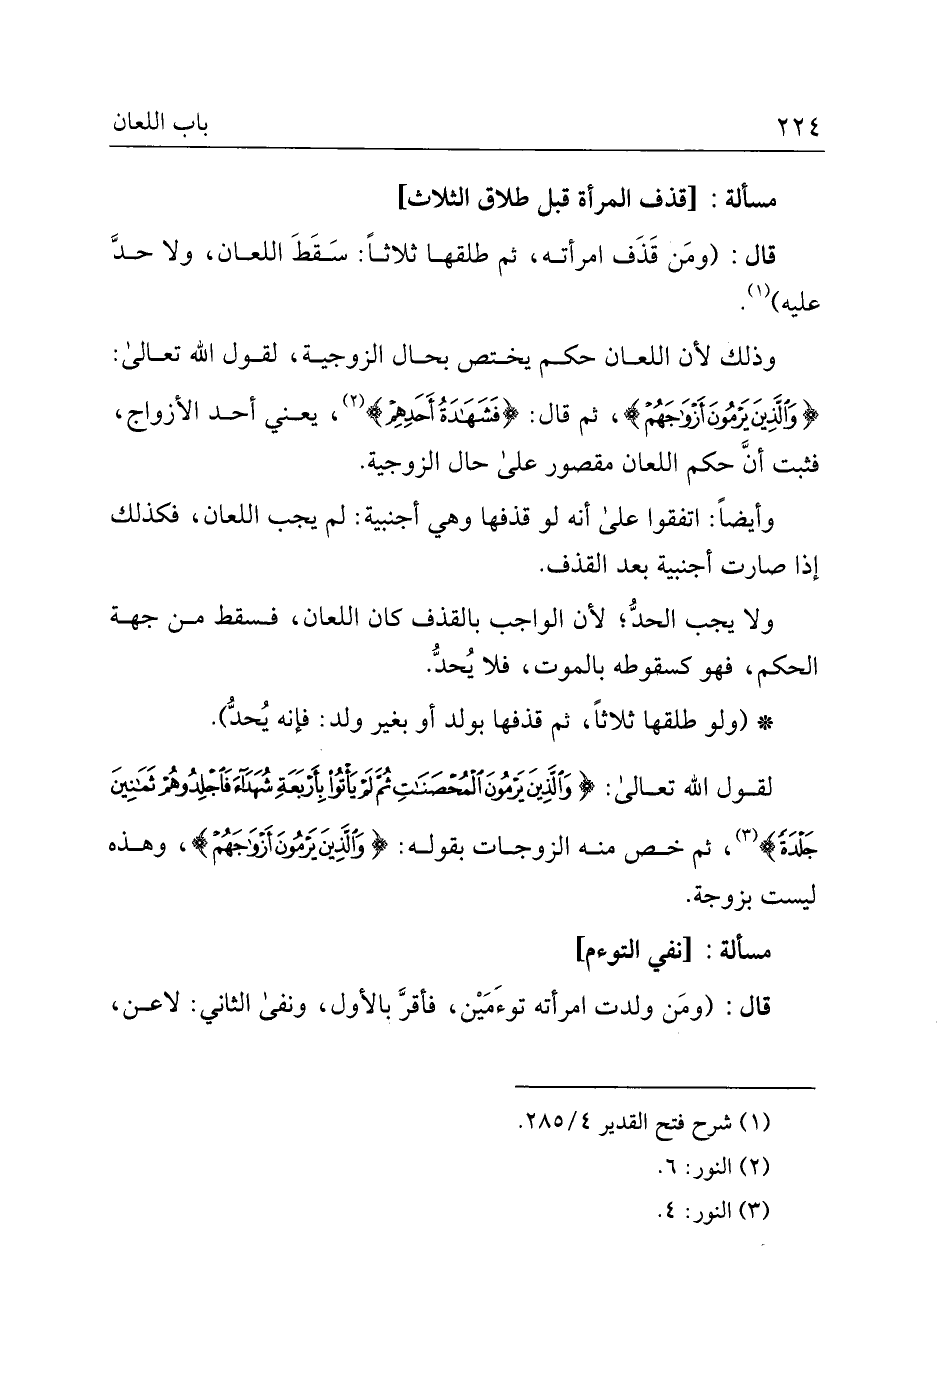 ٢٢٤ باب اللعان
مسألة : [قذف المرأة قبل طلاق الثلاث]
قال : (ومَن قَذَف امرأتـه، ثم طلقهـا ثلاثـاً: سَـقَطَ اللعـان، ولا حـدَّ
عليه)(١).
وذلك لأن اللعـان حكـم يخـتص بحـال الزوجيـة، لقـول الله تعـالىٰ:
﴿ وَٱلَّذِينَ يَرۡمُونَ أَزۡوَٰجَهُمۡ ﴾، ثم قال: ﴿فَشَهَٰدَةُ أَحَدِهِمۡ﴾(٢)، يعـني أحـد الأزواج،
فثبت أنَّ حكم اللعان مقصور علىٰ حال الزوجية.
وأيضاً: اتفقوا علىٰ أنه لو قذفها وهي أجنبية: لم يجب اللعان، فكذلك
إذا صارت أجنبية بعد القذف.
ولا يجب الحدُّ؛ لأن الواجب بالقذف كان اللعان، فـسقط مـن جهـة
الحكم، فهو كسقوطه بالموت، فلا يُحدُّ.
* (ولو طلقها ثلاثاً، ثم قذفها بولد أو بغير ولد: فإنه يُحدُّ).
لقـول الله تعـالىٰ: ﴿ وَٱلَّذِينَ يَرۡمُونَ ٱلۡمُحۡصَنَٰتِ ثُمَّ لَمۡ يَأۡتُواْ بِأَرۡبَعَةِ شُهَدَآءَ فَٱجۡلِدُوهُمۡ ثَمَٰنِينَ
جَلۡدَةٗ﴾(٣)، ثم خـص منـه الزوجـات بقولـه: ﴿ وَٱلَّذِينَ يَرۡمُونَ أَزۡوَٰجَهُمۡ ﴾، وهـذه
ليست بزوجة.
مسألة : [نفي التوءم]
قال : (ومَن ولدت امرأته توءَمَيْن، فأقرَّ بالأول، ونفىٰ الثاني: لاعـن،
(١) شرح فتح القدير ٢٨٥/٤.
(٢) النور: ٦.
(٣) النور: ٤.